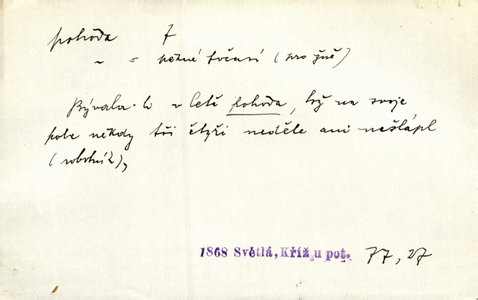 pohoda f
~ = pěkné počasí (pro žně)
Bývala-li v létě pohoda, byl na svoje
pole někdy tři čtyři neděle ani nešlápl
(robotník),
1868 Světlá, Kříž u pot. 77, 27